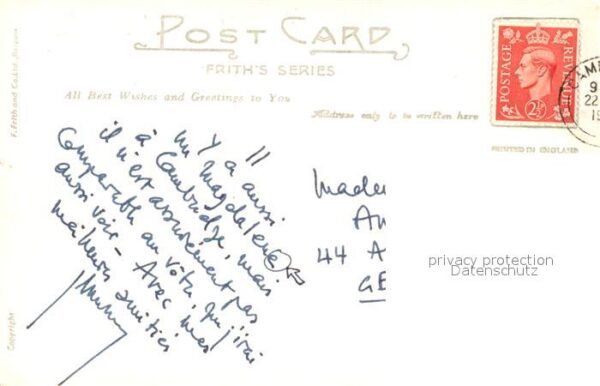 POST CARD
FRITH'S SERIES
All Best Wishes and Greetings to You
Address only to be written here
F. Frith and Co. Ltd., Reigate
Copyright
POSTAGE
REVENUE
2½
CAMB
9
22
19
PRINTED IN ENGLAND
Il
y a aussi
un Magdalene
à Cambridge, mais
il n'est assurément pas
comparable au vôtre, que j'irai
aussi voir – Avec mes
meilleures amitiés
Madem
An
44 A
GE
privacy protection
Datenschutz